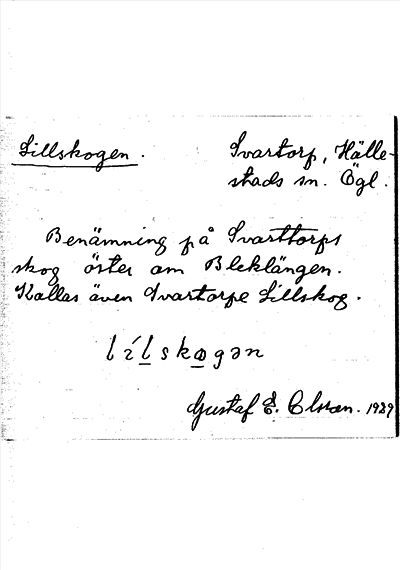 Lillskogen.
Svartorp, Hälle-
stads sn. Ögl.
Benämning på Svarttorps
skog öster om Bleklängen.
Kallas även Svartorps Lillskog.
líl̲sko̲gən
Gustaf E. Olsson. 1929